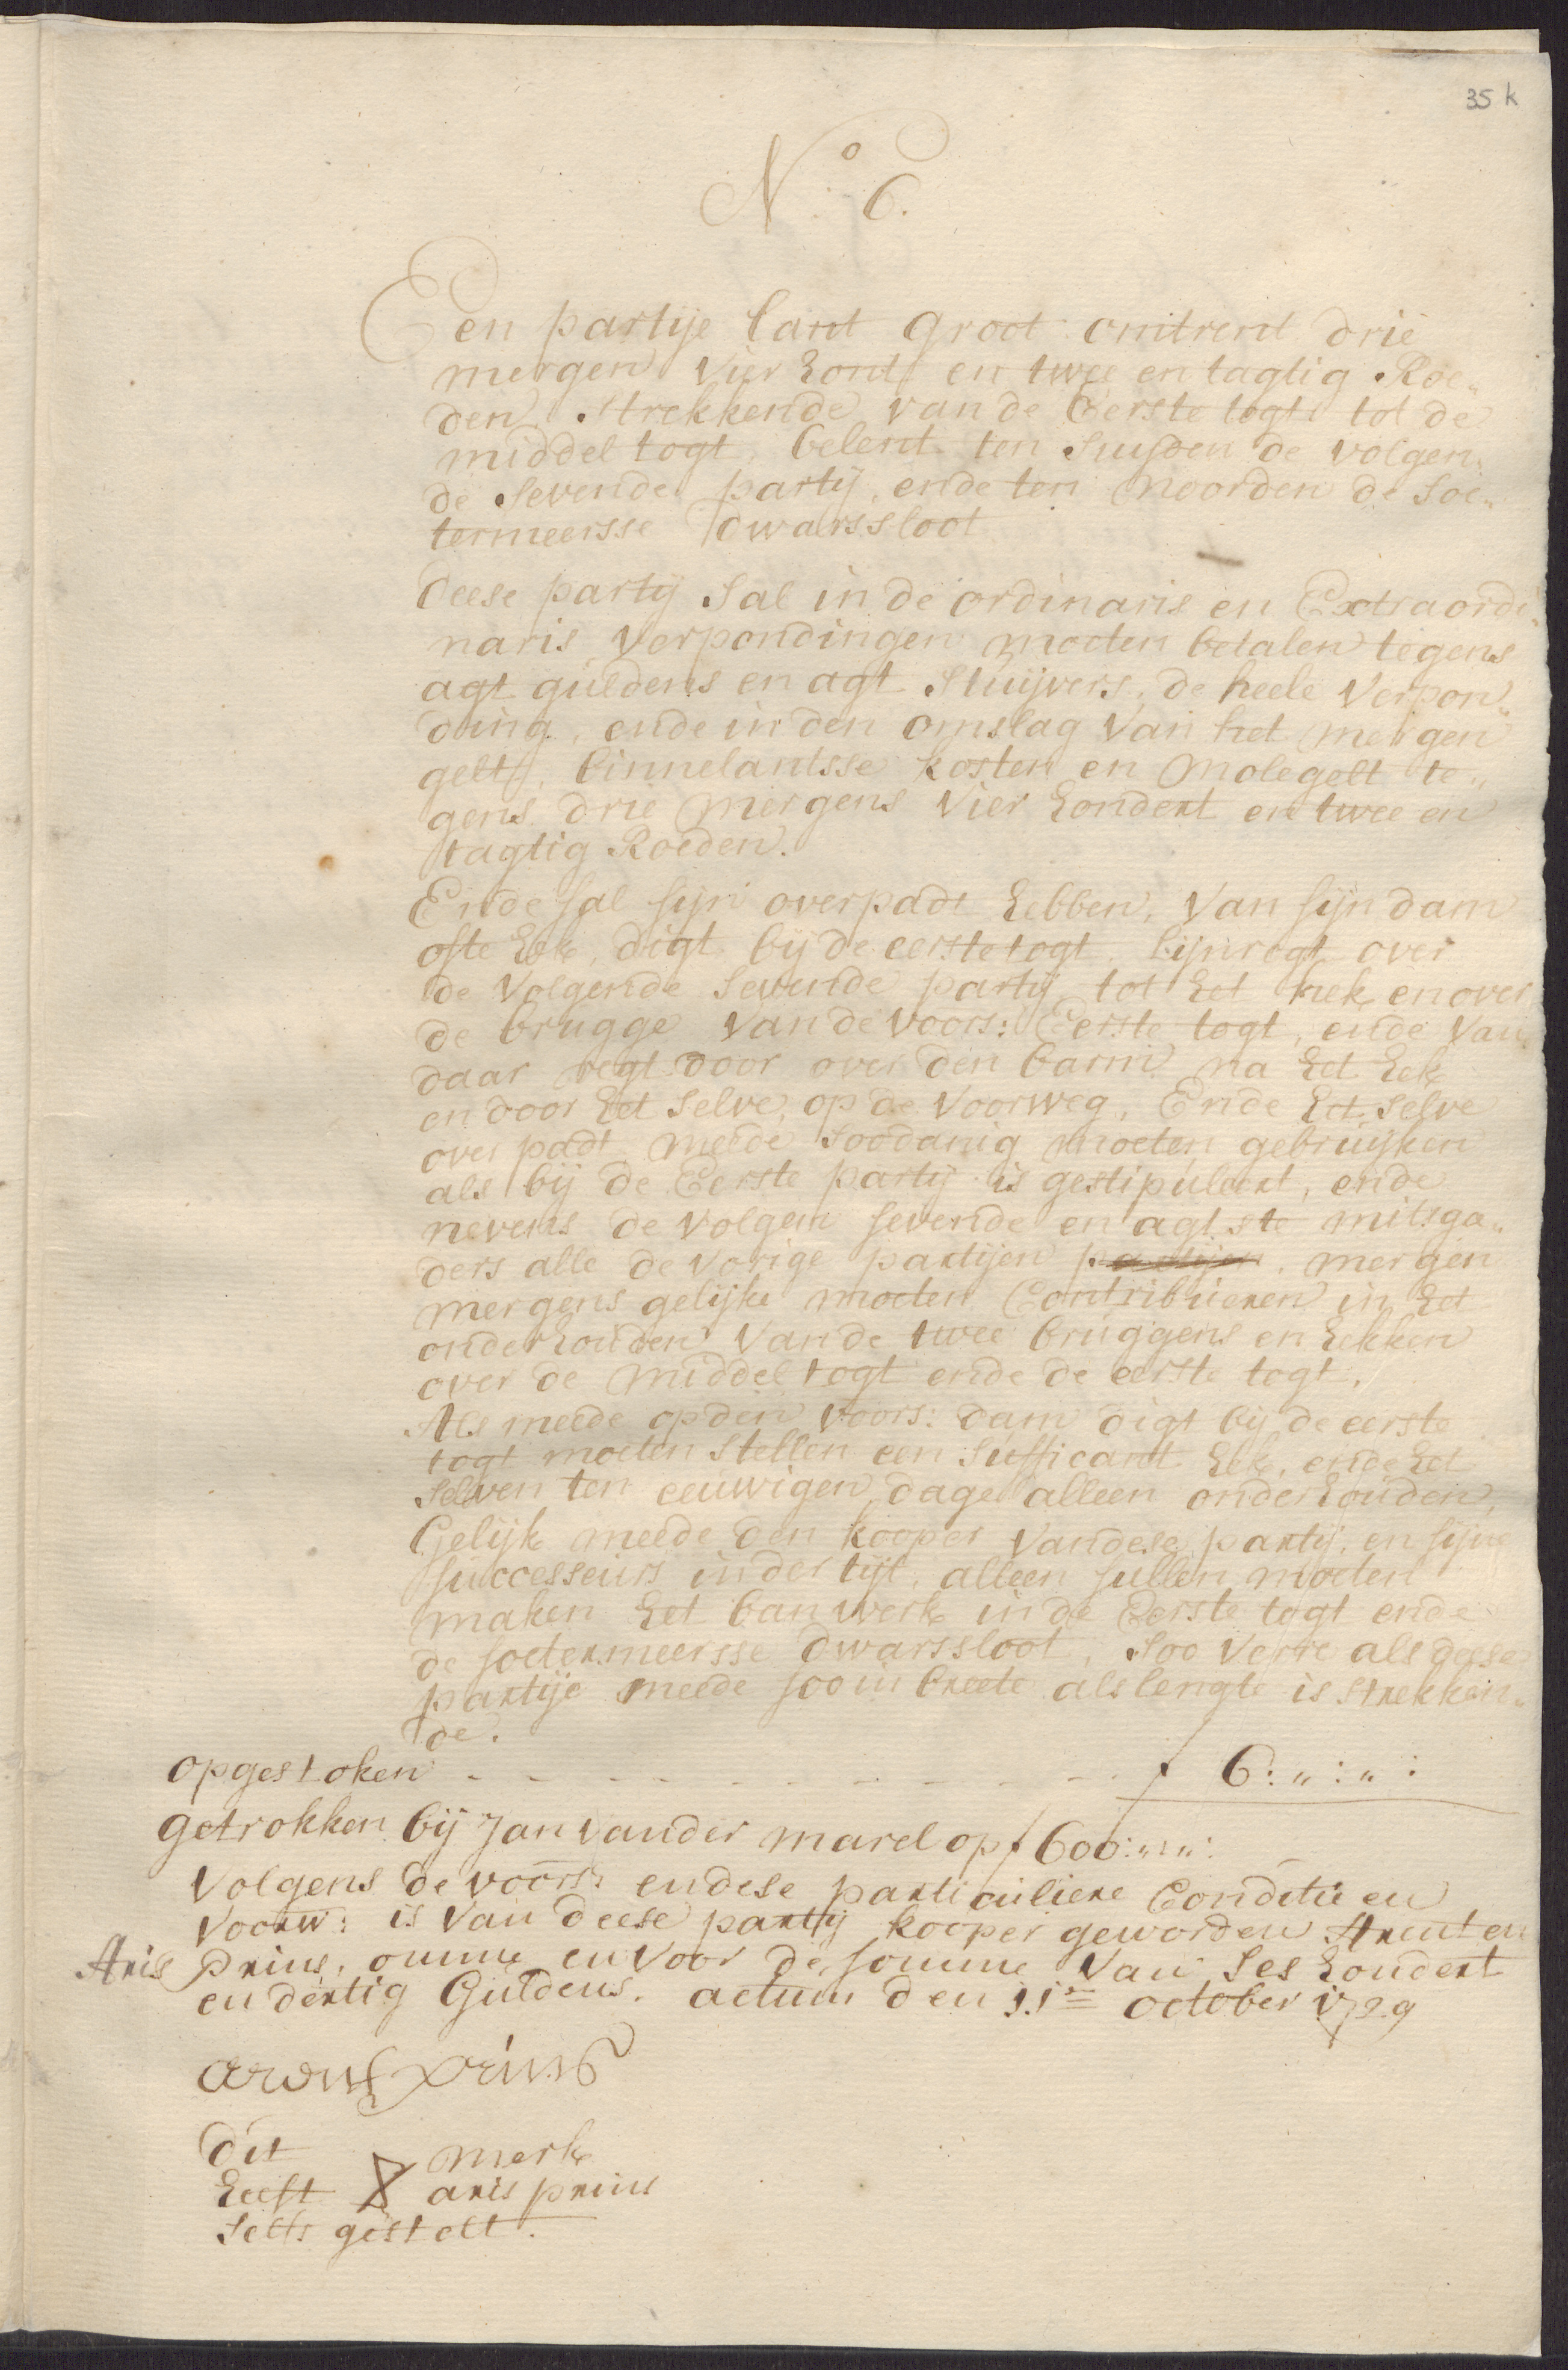 35 k
N:o 6.
Een partije lant groot omtrent drie
mergen vier hont en twee en tagtig Roe„
den, strekkende van de Eerste togt tot de
middel togt, belent ten suijden de volgen„
de sevende partij, ende ten noorden de soe„
termeersse dwarssloot
Deese partij sal in de ordinaris en Extraordi„
naris verpondingen moeten betalen tegens
agt guldens en agt stuijvers, de heele verpon„
ding, ende in den omslag van het mergen
gelt, binnelantsse kosten en molegelt te„
gens drie mergens vier hondert en twee en
tagtig Roeden.
Ende sal sijn overpadt hebben, van sijn dam
ofte hek, digt bij de eerste togt, lijnregt over
de volgende sevende partij tot het hek en over
de brugge van de voors: Eerste togt, ende van
daar regt door over den barm na het hek
en door het selve, op de voorweg, Ende het selve
over padt meede soodanig moeten gebruijken
als bij de Eerste partij is gestipuleert, ende
nevens de volgen sevende en agtste mitsga„
ders alle de vorige partijen partijen, mergen
mergens gelijke moeten Contribueren in het
onderhouden van de twee bruggens en hekken
over de middel togt ende de eerste togt.
Als meede op den voors: dam digt bij de eerste
togt moeten stellen een sufficant hek, ende het
selven ten eeuwigen dage alleen onderhouden,
Gelijk meede den kooper van dese partij, en sijne
successeurs inder tijt, alleen sullen moeten
maken het banwerk in de Eerste togt ende
de soetermeersse dwarssloot, soo verre als deese
partije meede soo in breete als lengte is strekken„
de.
opgestoken - - - - - - - - - - - ƒ 6:„:„:
getrokken bij Jan vander marel op ƒ 600:„:„:
Volgens de voors: en dese particuliere Conditie en
voorw: is van deese partij kooper geworden Arent en
Aris Prins, omme en voor de somme van ses hondert
en dertig Guldens. actum den 11en october 1729
arent prins
dit merk
heeft aris prins
selfs gestelt.